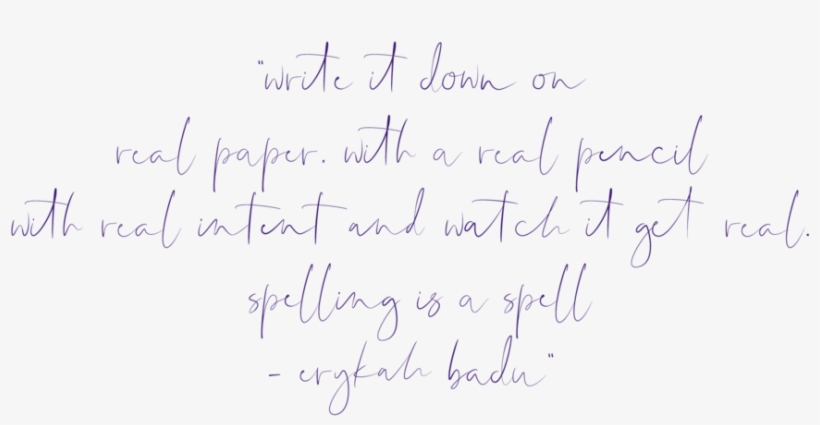 "write it down on
real paper. with a real pencil
with real intent and watch it get real.
spelling is a spell
- erykah badu"